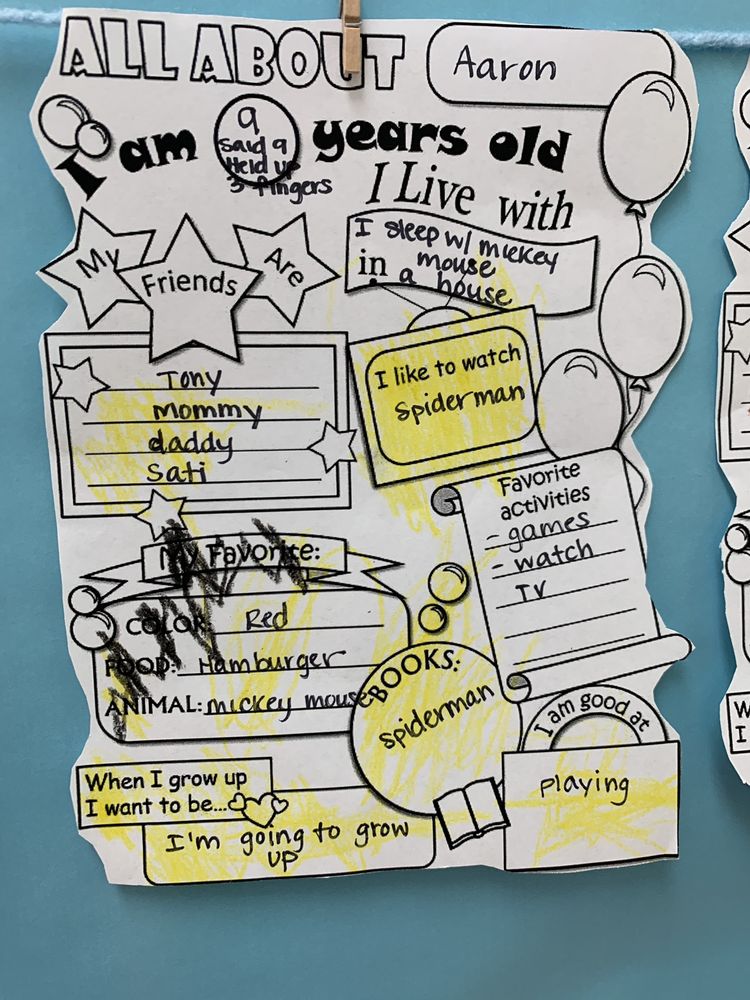 ALL ABOUT Aaron
I am 9 years old
said 9
Held up
3 fingers
I Live with
I sleep w/ mickey
in mouse
a house
My Friends Are
Tony
Mommy
daddy
Sati
I like to watch
Spiderman
Favorite
activities
- games
- watch
TV
My Favorite:
COLOR: Red
FOOD: Hamburger
ANIMAL: mickey mouse
BOOKS:
spiderman
I am good at
playing
When I grow up
I want to be...
I'm going to grow
up
W
I